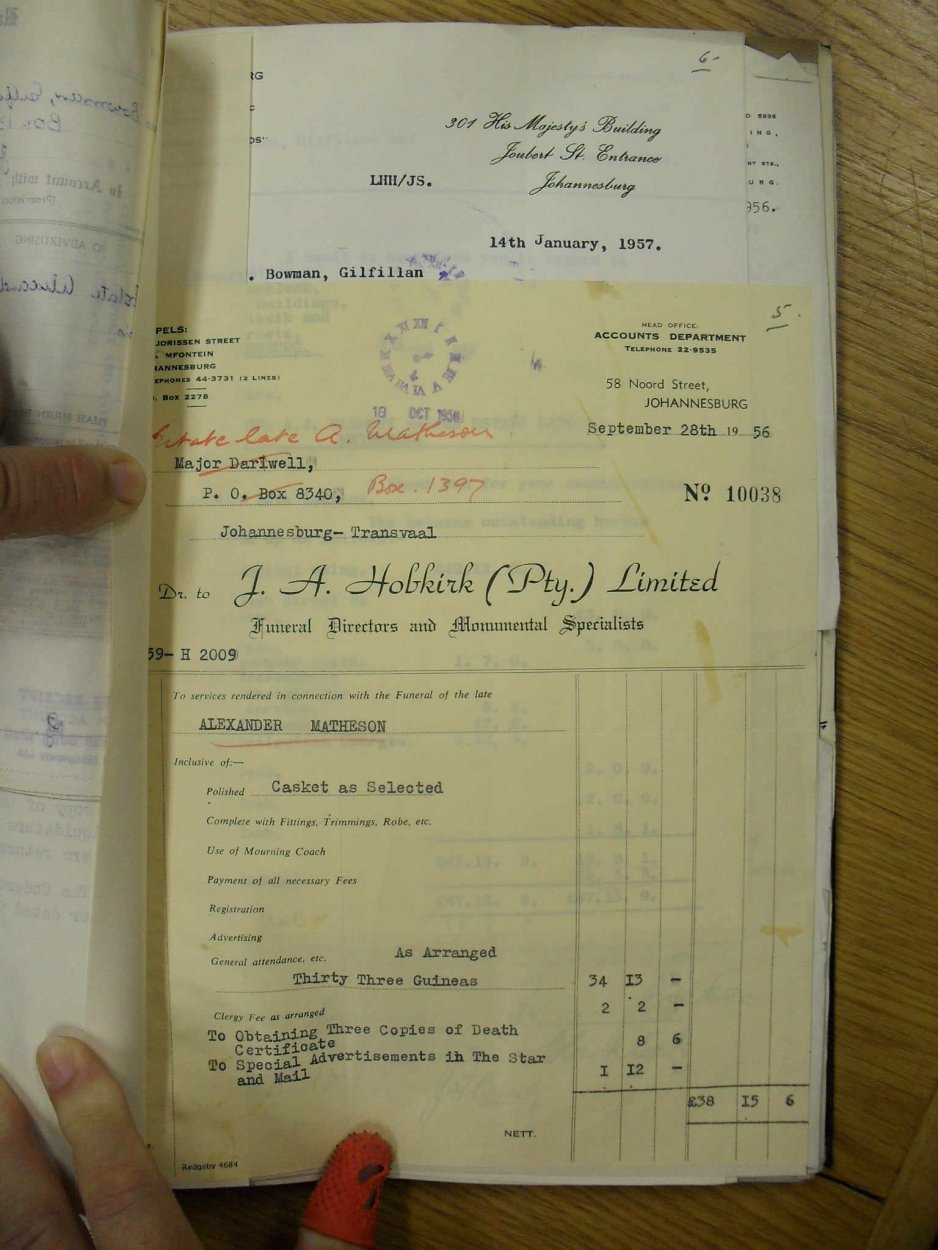 6-
301 His Majesty's Building
Joubert St. Entrance
Johannesburg
LHH/JS.
956.
14th January, 1957.
. Bowman, Gilfillan
5.
PELS:
JORISSEN STREET
MFONTEIN
HANNESBURG
EPHONES 44-3731 (2 LINES)
. Box 2278
HEAD OFFICE:
ACCOUNTS DEPARTMENT
TELEPHONE 22-9535
58 Noord Street,
JOHANNESBURG
18 OCT 1956
September 28th 19 56
Estate late A. Matheson
Major Dartwell,
P. O. Box 8340, Box. 1397
No. 10038
Johannesburg- Transvaal
Dr. to J. A. Hobkirk (Pty.) Limited
Funeral Directors and Monumental Specialists
59- H 2009
To services rendered in connection with the Funeral of the late
ALEXANDER MATHESON
Inclusive of:—
Polished Casket as Selected
Complete with Fittings, Trimmings, Robe, etc.
Use of Mourning Coach
Payment of all necessary Fees
Registration
Advertising
General attendance, etc. As Arranged
Thirty Three Guineas 34 13 -
Clergy Fee as arranged 2 2 -
To Obtaining Three Copies of Death
Certificate 8 6
To Special Advertisements in The Star
and Mail 1 12 -
£38 15 6
NETT.
Redgeby 4684